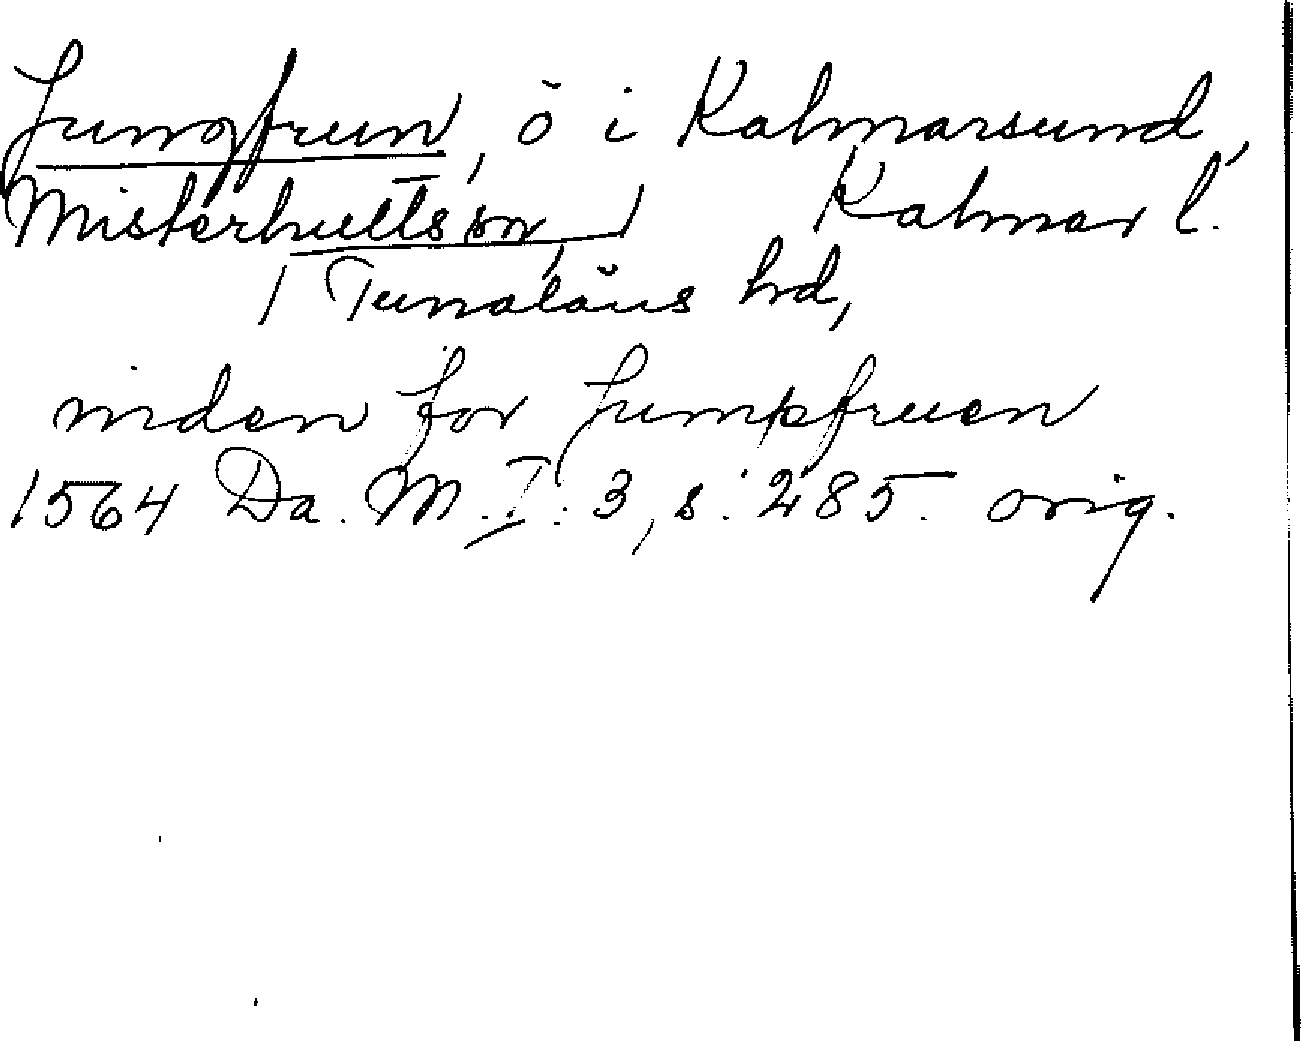 Jungfrun, ö i Kalmarsund,
Misterhults sn, / Kalmar l.
/ Tunaläns hd,
inden for Jumpfruen
1564 Da. M. I: 3, s. 285. orig.